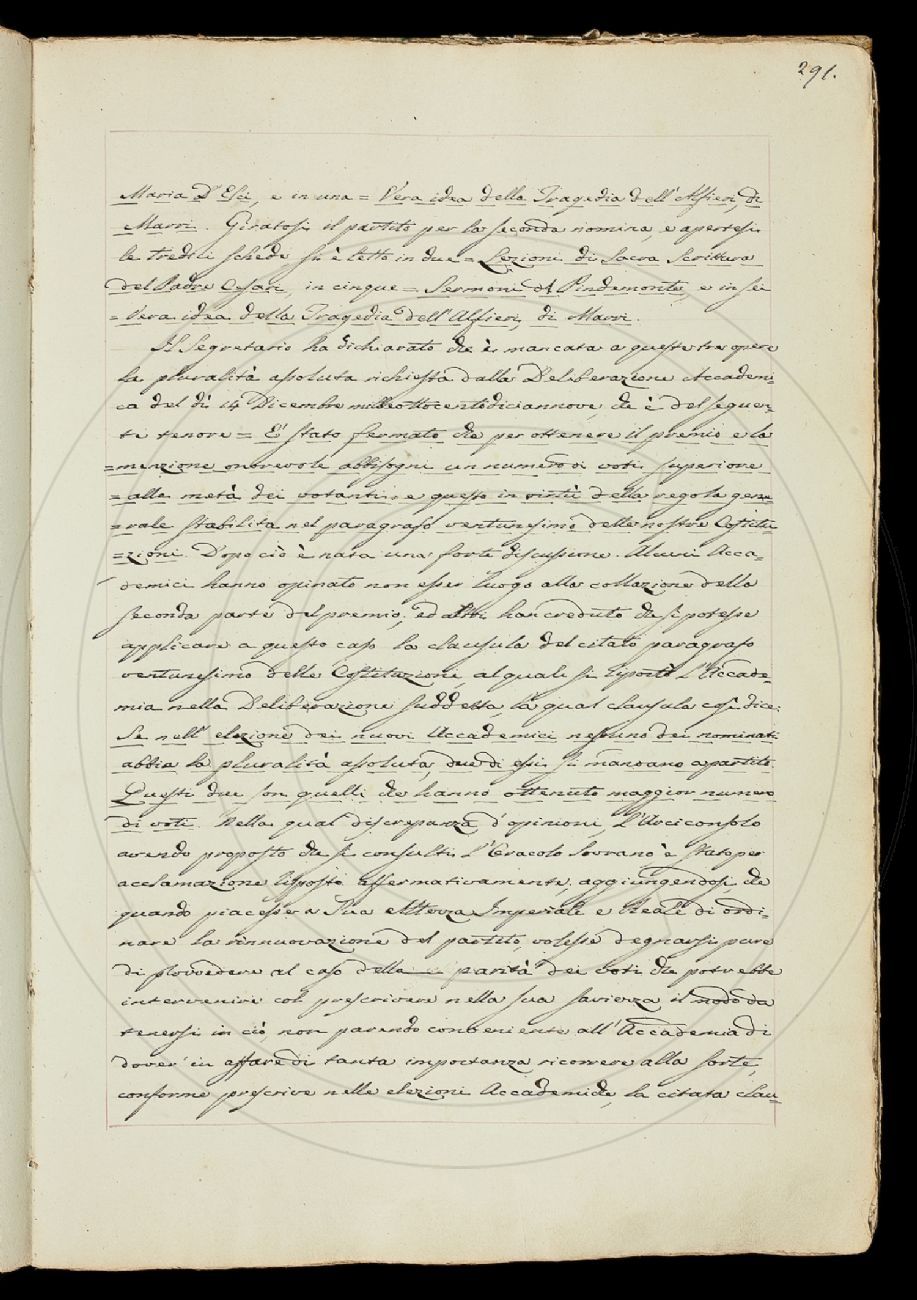 291.
Maria D'Esei, e in una = Vera idea della Tragedia dell'Alfieri, di
Marrè. Giratosi il partito per la seconda nomina, e apertesi
le tredici schede si è letto in due = Lezioni di Sacra Scrittura
del Padre Cesari, in cinque = Sermoni di Pindemonte, e in sei
= Vera idea della Tragedia dell'Alfieri, di Marrè.
Il Segretario ha dichiarato che è mancata a queste tre opere
la pluralità assoluta richiesta dalla Deliberazione Accademi=
ca del dì 14 Dicembre milleottocentodiciannove che è del seguen=
te tenore = E' stato fermato che per ottenere il premio e la
=menzione onorevole abbisogni un numero di voti superiore
= alla metà dei votanti, e questo in virtù della regola gene
=rale stabilita nel paragrafo ventunesimo delle nostre Costitu
=zioni. Dopo ciò è nata una forte discussione. Alcuni Acca=
demici hanno opinato non esser luogo alla collazione della
seconda parte del premio, ed altri han creduto che si potesse
applicare a questo caso la clausula del citato paragrafo
ventunesimo delle Costituzioni, al quale si riportò l'Accade=
mia nella Deliberazione suddetta, la qual clausula così dice:
Se nell'elezione dei nuovi Accademici nessuno dei nominati
abbia la pluralità assoluta, due di essi si mandano a partito.
Questi due son quelli che hanno ottenuto maggior numero
di voti. Nella qual discrepanza d'opinioni, l'Arciconsolo
avendo proposto che si consulti l'Oracolo Sovrano è stato per
acclamazione risposto affermativamente, aggiungendosi, che
quando piacesse a Sua Altezza Imperiale e Reale di ordi=
nare la rinnuovazione del partito, volesse degnarsi pure
di provvedere al caso della parità dei voti che potrebbe
intervenire col prescrivere nella sua saviezza il modo da
tenersi in ciò, non parendo conveniente all'Accademia di
dover in affare di tanta importanza ricorrere alla sorte,
conforme prescrive nelle elezioni Accademiche, la citata clau=